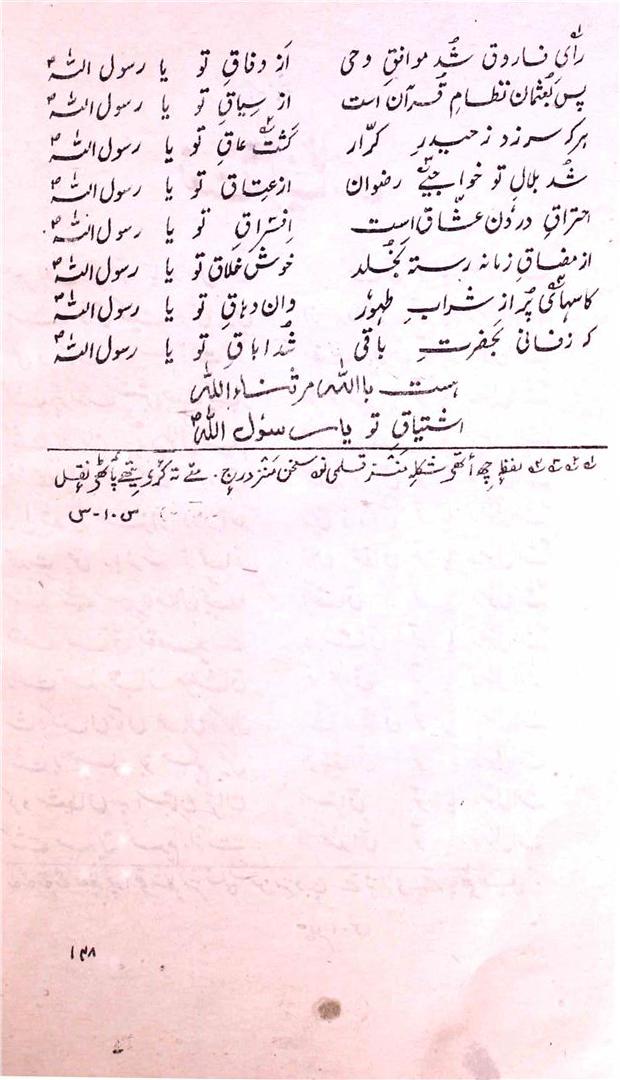 رأی فاروق شُد موافقِ وحی از وفاقِ تو یا رسول اللہؐ
پس بَعُثمان نظامِ قُرآن است از سیاقِ تو یا رسول اللہؐ
ہرکہ سر زد ز حیدرِ کرّار گشت عاقِ تو یا رسول اللہؐ
شُد بلالِ تو خواجۂ رضوان از عتاقِ تو یا رسول اللہؐ
احتراقِ درونِ عشّاق است اِفتراقِ تو یا رسول اللہؐ
از مضاقِ زمانہ رستہ بخُلد خوش خلاقِ تو یا رسول اللہؐ
کاسہای پُر از شرابِ طہور وان دہاقِ تو یا رسول اللہؐ
کہ ز فانی بحضرتِ باقی شُد اباقِ تو یا رسول اللہؐ
ہست باللہ مر ثناء اللہ
اشتیاقِ تو یا رسول اللہؐ
لفظ چھِ أتھۍ شکلہِ منٛز قلمی نسخن منٛز درج۔ مےٚ تہِ کٔرۍ یتھے پأٹھۍ نقل
س-۱۰-س
۱۳۸